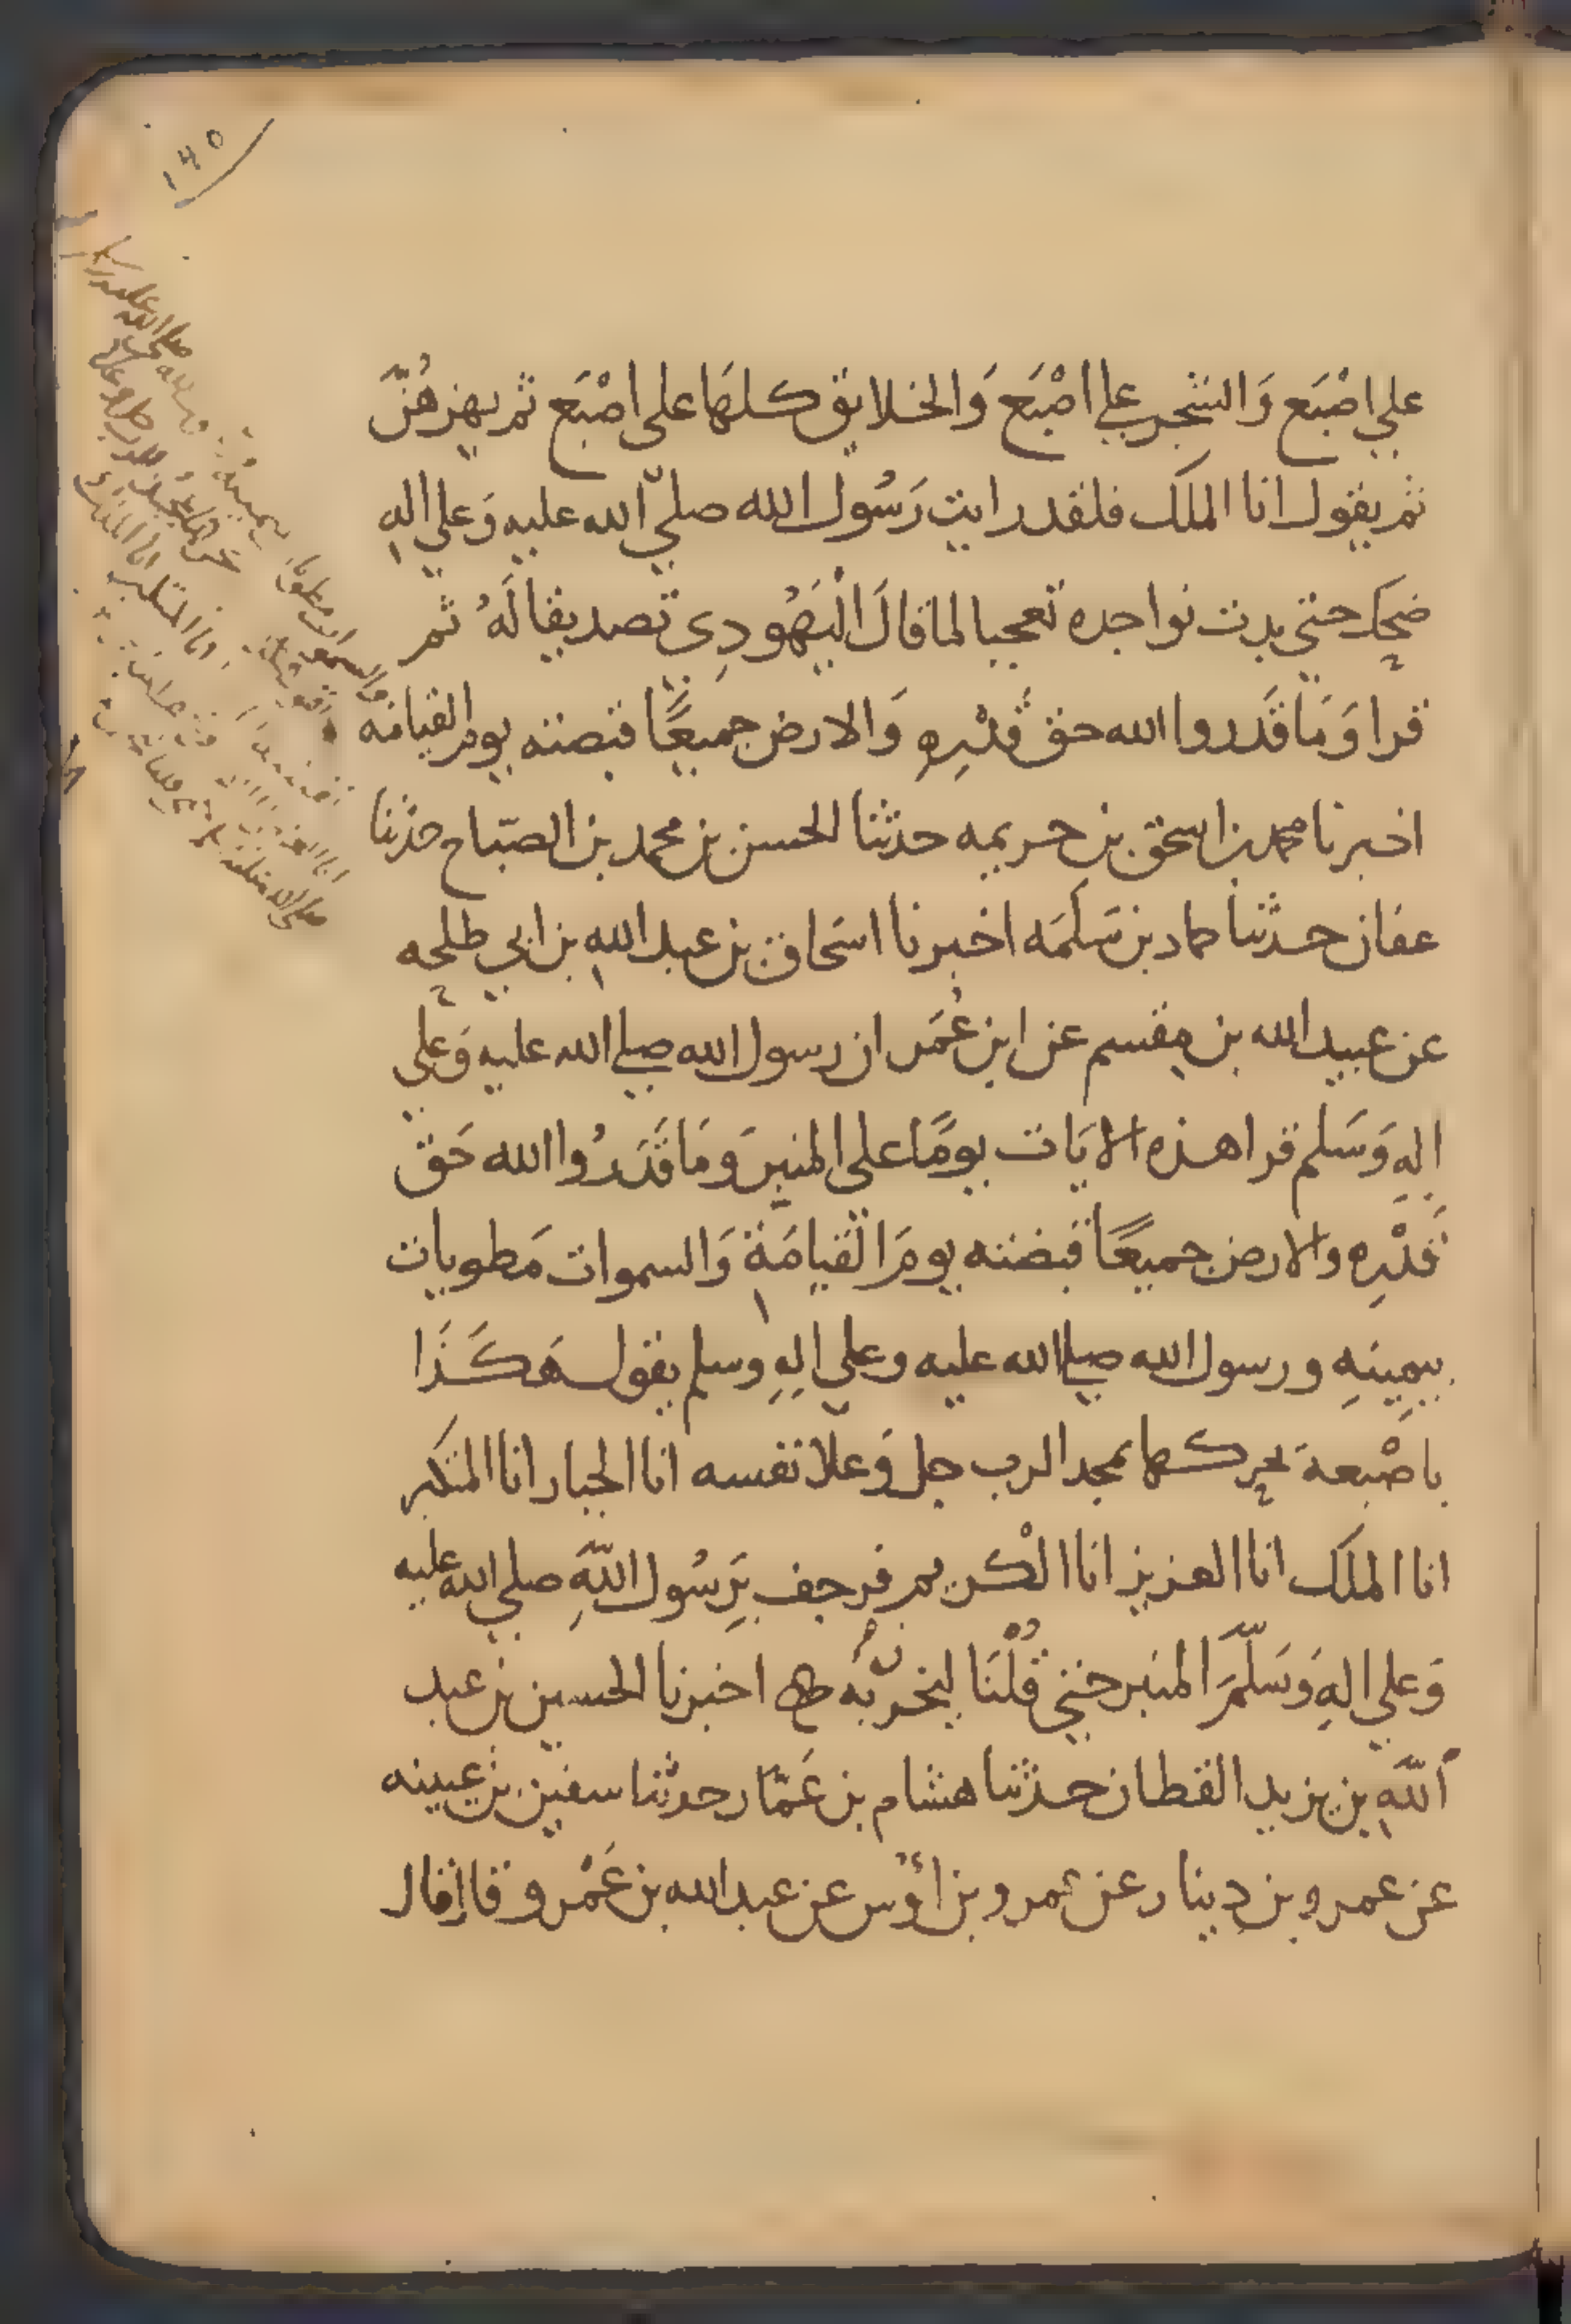 ١٢٥
علي اصْبَع وَالشجر علي اصْبَع وَالخلايق كلهَا على اصْبَع ثم يهزهُنّ
ثم يقول انا الملَك فلقد رايت رَسُول الله صليّ الله عليه وَعلي الهِ
ضحك حتي بدت نواجده تعجبا لما قالَ الْيَهُودِي تصديقا لَهُ ثم
قرا وَمَا قَدروا الله حق قَدْرِهِ وَالارض جميعًا قبضته يوم القيامه
اخبرنا محمد بن اسحق بن خريمه حدثنا الحسن بن محمد بن الصبّاح حدثنا
عفان حدثنا حماد بن سَلَمَه اخبرنا اسحَاق بن عبد اللهِ بن ابي طلحه
عن عبيد الله بن مِقسم عن ابن عُمَر ان رسول الله صلي الله عليه وَعلي
الهِ وَسَلم قرا هذه الايَات يومًا على المنبر وَمَا قَدَرُوا الله حَق
قَدْرِه والارض جميعًا قبضته يومَ القيامَة وَالسموات مَطويات
بيمينهِ ورسول الله صلي الله عليه وعلي الهِ وسلم يقول هَكَذَا
باصْبعه يحركها يمجد الرب جل وَعلا نفسه انا الجبار انا المتكبر
انا الملَك انا العزيز انا الْكريم فرجف بِرَسُول اللّهِ صلي الله عليه
وَعلي الهِ وَسَلّمَ المنبر حتي قُلْنَا ليخرّنّ به اخبرنا الحسين بن عبد
اللّهِ بن يزيد القطان حدثنا هشام بن عَمّار حدثنا سفين بن عيينه
عن عمرو بن دِينار عن عمرو بن اوْس عن عبد الله بن عَمْرو قال قال